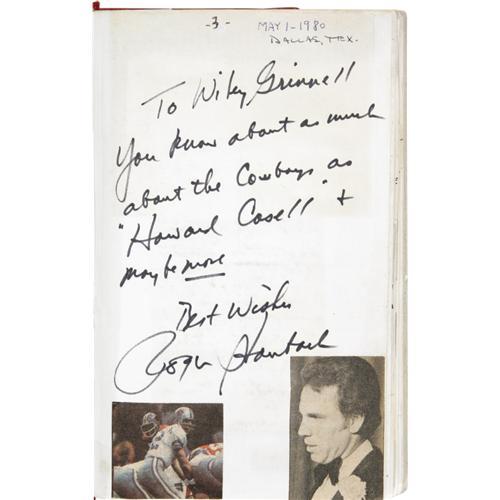 -3-
MAY 1-1980
DALLAS, TEX.
To Wiley Grinnell
You know about as much
about the Cowboys as
"Howard Casell" +
maybe more
Best Wishes
Roger Staubach